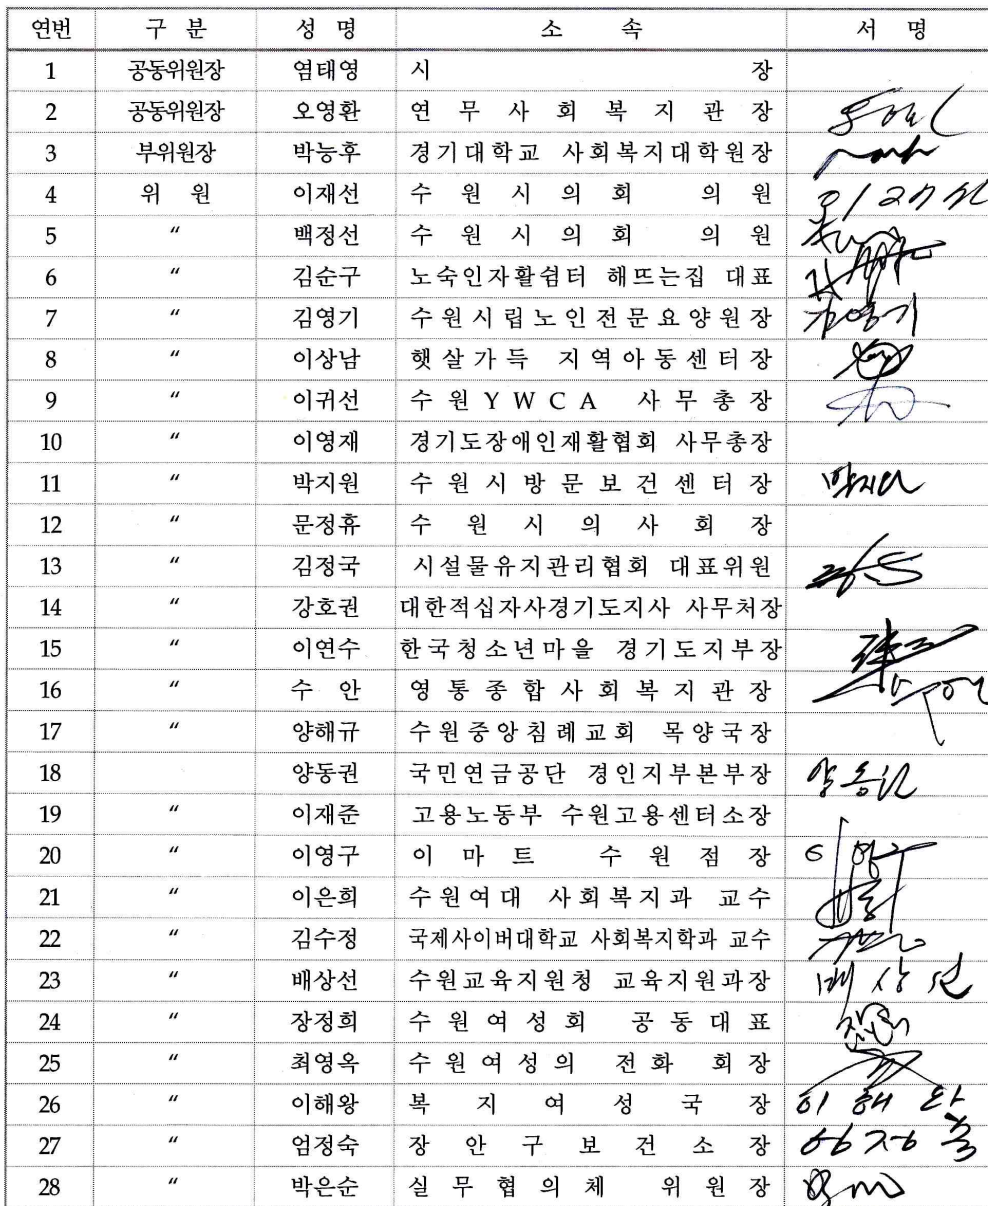 연번 구 분 성 명 소 속 서 명
1 공동위원장 염태영 시 장
2 공동위원장 오영환 연 무 사 회 복 지 관 장
3 부위원장 박능후 경기대학교 사회복지대학원장
4 위 원 이재선 수 원 시 의 회 의 원
5 〃 백정선 수 원 시 의 회 의 원
6 〃 김순구 노숙인자활쉼터 해뜨는집 대표
7 〃 김영기 수원시립노인전문요양원장 김영기
8 〃 이상남 햇살가득 지역아동센터장
9 〃 이귀선 수 원 Y W C A 사 무 총 장
10 〃 이영재 경기도장애인재활협회 사무총장
11 〃 박지원 수 원 시 방 문 보 건 센 터 장
12 〃 문정휴 수 원 시 의 사 회 장
13 〃 김정국 시설물유지관리협회 대표위원
14 〃 강호권 대한적십자사경기도지사 사무처장
15 〃 이연수 한국청소년마을 경기도지부장
16 〃 수 안 영 통 종 합 사 회 복 지 관 장
17 〃 양해규 수원중앙침례교회 목양국장
18 양동권 국민연금공단 경인지부본부장
19 〃 이재준 고용노동부 수원고용센터소장
20 〃 이영구 이 마 트 수 원 점 장
21 〃 이은희 수원여대 사회복지과 교수
22 〃 김수정 국제사이버대학교 사회복지학과 교수
23 〃 배상선 수원교육지원청 교육지원과장 배상선
24 〃 장정희 수 원 여 성 회 공 동 대 표
25 〃 최영옥 수 원 여 성 의 전 화 회 장
26 〃 이해왕 복 지 여 성 국 장
27 〃 엄정숙 장 안 구 보 건 소 장
28 〃 박은순 실 무 협 의 체 위 원 장